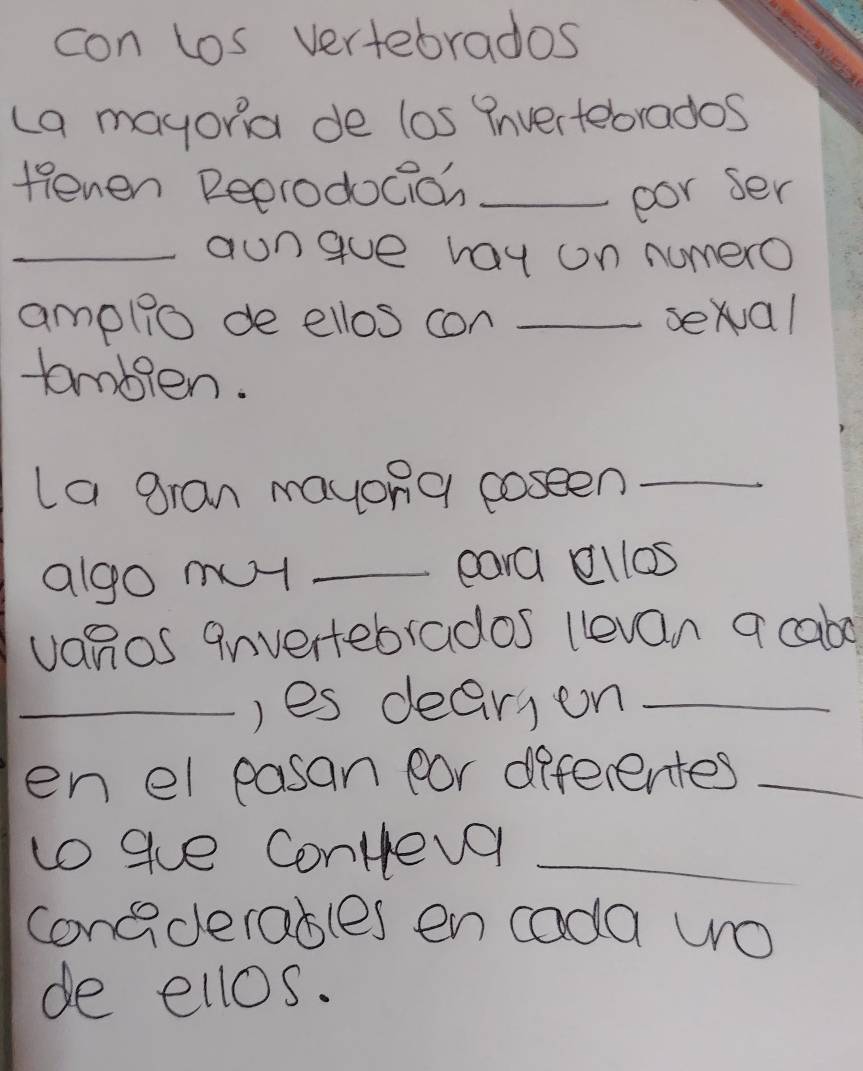 con los vertebrados
La mayoria de los invertebrados
tienen Reprodoción _____ por ser
_____ aunque hay un numero
amplio de ellos con _____ sexual
tambien.
La gran mayoria poseen _____
algo muy _____ para ellos
varios invertebrados llevan a cabo
_____, es decir, un _____
en el pasan por diferentes _____
lo que conlleva _____
considerables en cada uno
de ellos.